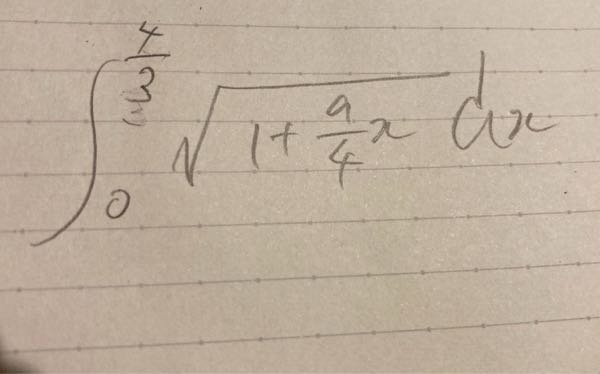 ∫₀^{4/3} √(1 + 9/4 x) dx